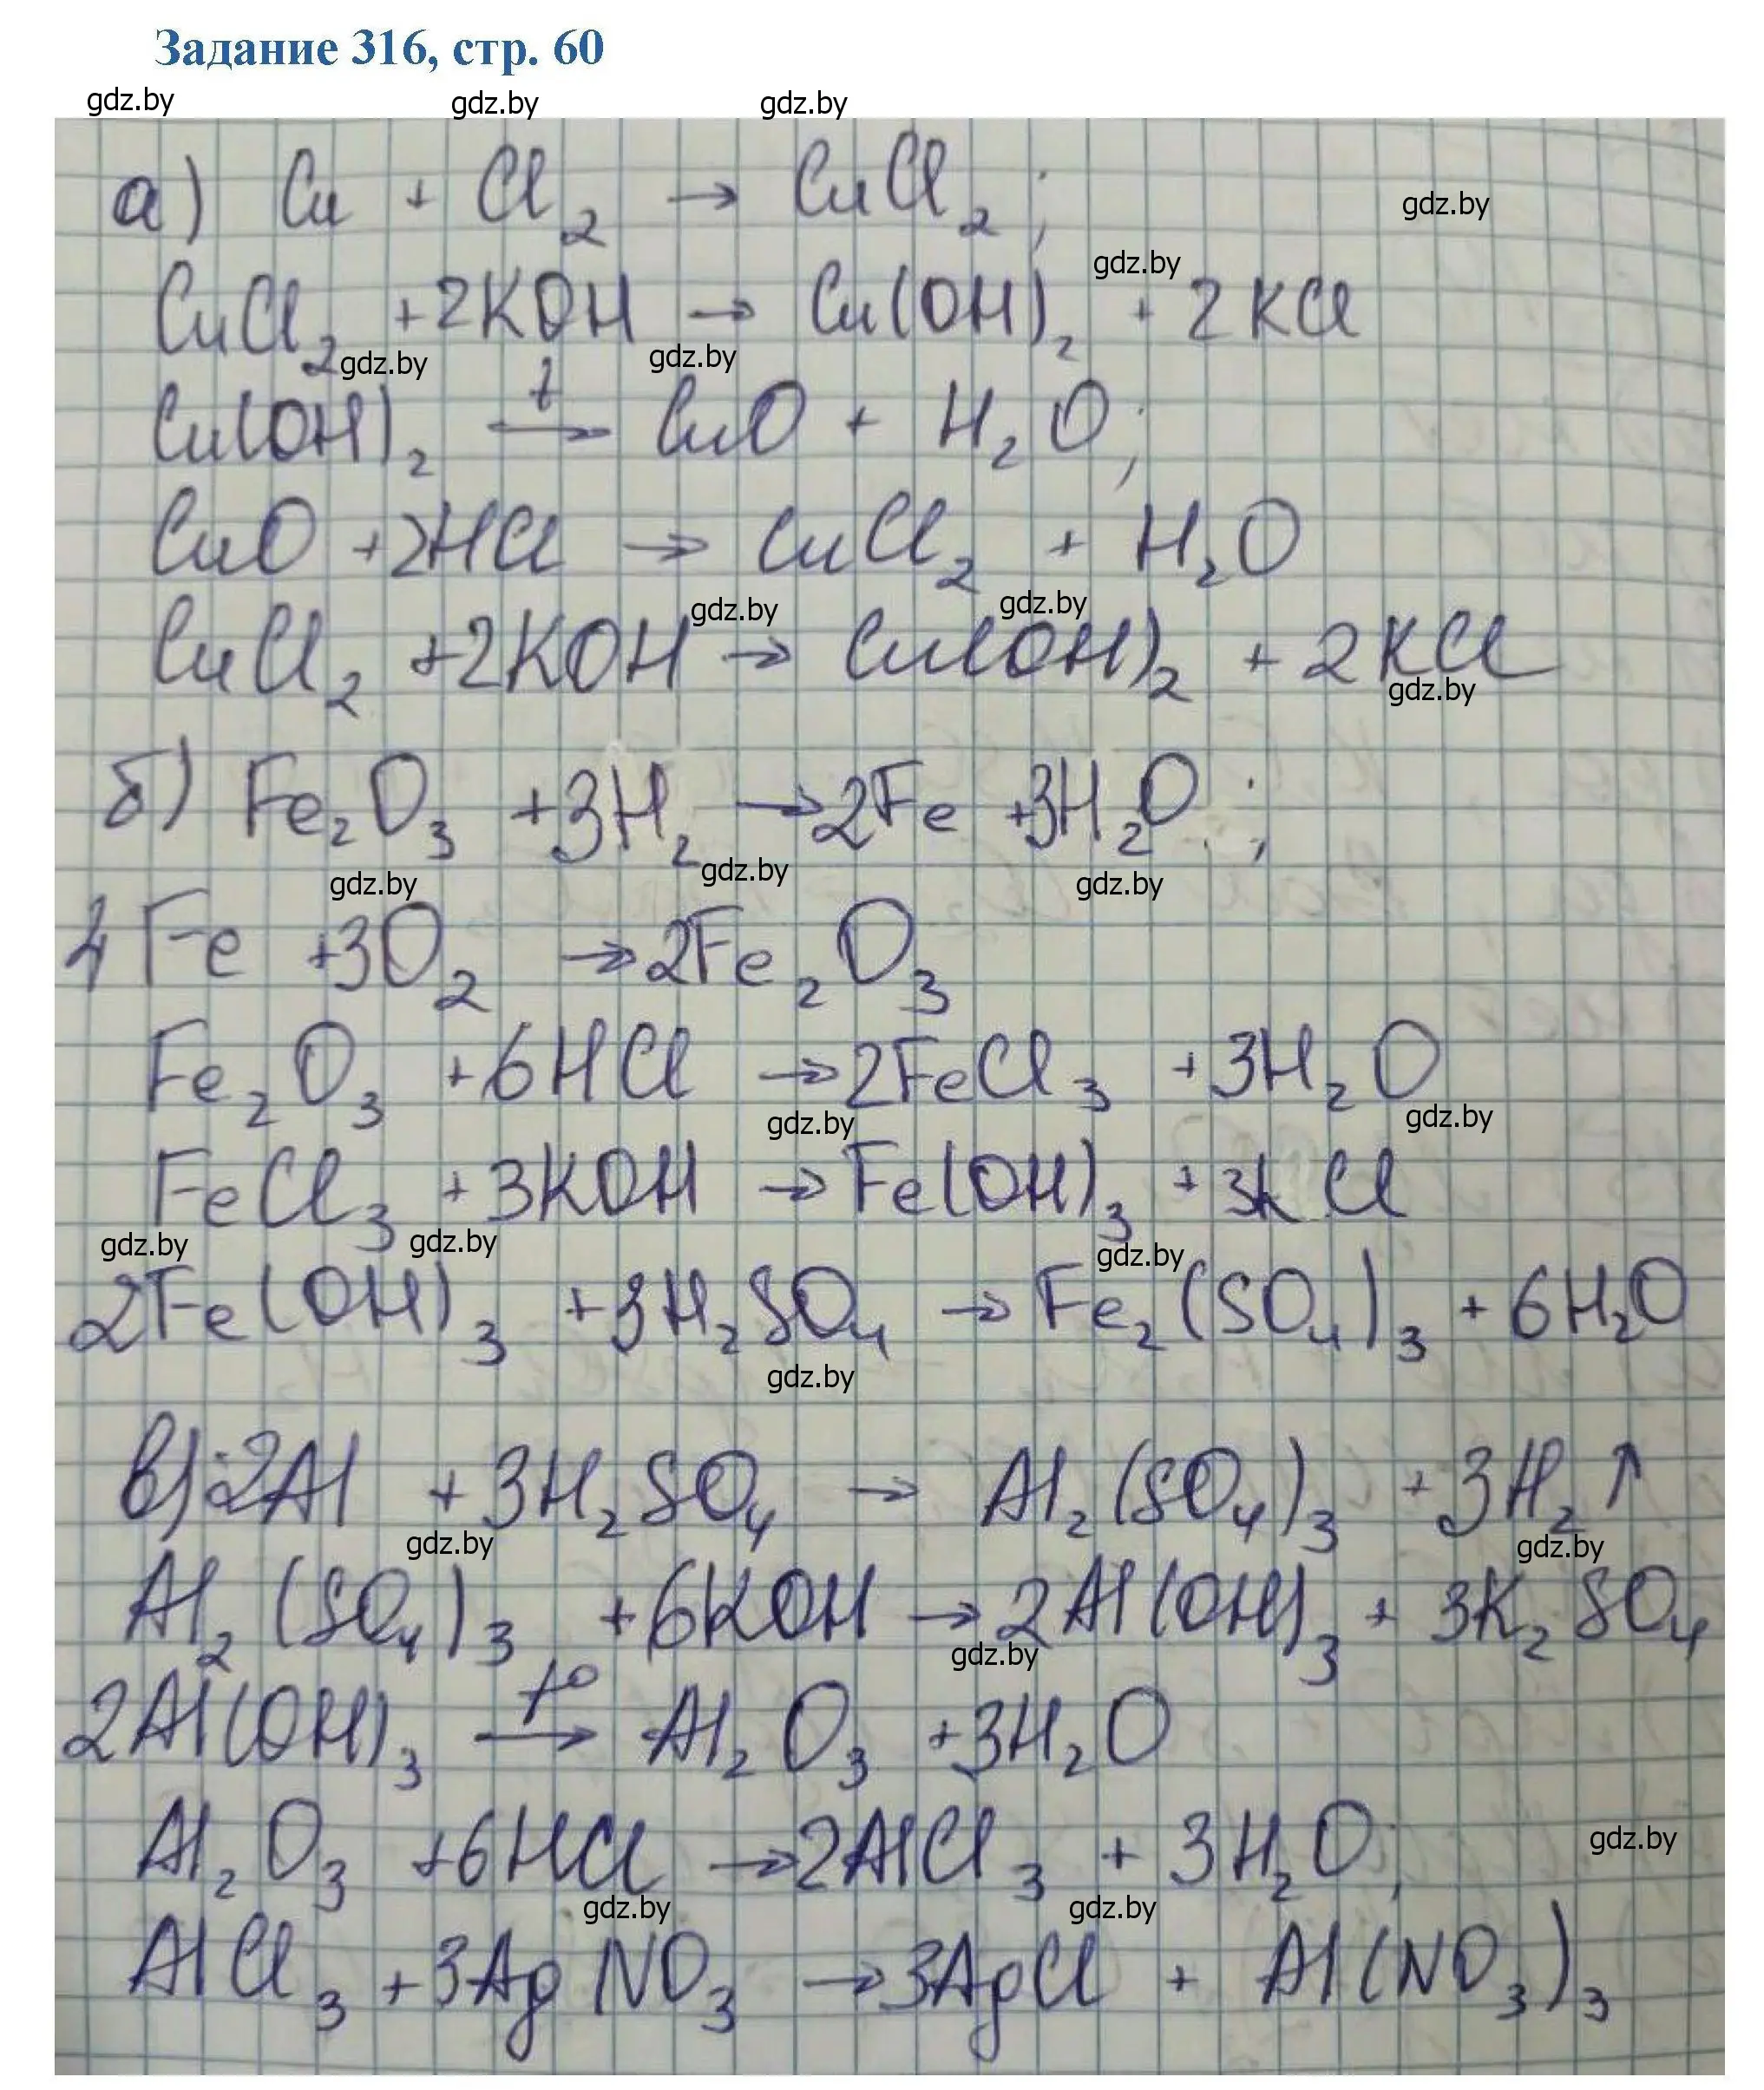 Задание 316, стр. 60
gdz.by gdz.by gdz.by
а) Cu + Cl₂ → CuCl₂;
gdz.by
gdz.by
CuCl₂ +2KOH → Cu(OH)₂ + 2KCl
gdz.by gdz.by
Cu(OH)₂ t→ CuO + H₂O;
CuO +2HCl → CuCl₂ + H₂O
gdz.by gdz.by
CuCl₂ +2KOH → Cu(OH)₂ + 2KCl
gdz.by
б) Fe₂O₃ +3H₂ →2Fe +3H₂O;
gdz.by gdz.by gdz.by
4Fe +3O₂ →2Fe₂O₃
Fe₂O₃ +6HCl →2FeCl₃ +3H₂O
gdz.by gdz.by
FeCl₃ +3KOH →Fe(OH)₃ +3KCl
gdz.by gdz.by gdz.by
2Fe(OH)₃ +3H₂SO₄ → Fe₂(SO₄)₃ +6H₂O
gdz.by
в) 2Al +3H₂SO₄ → Al₂(SO₄)₃ +3H₂↑
gdz.by gdz.by
Al₂(SO₄)₃ +6KOH →2Al(OH)₃ + 3K₂SO₄
gdz.by
2Al(OH)₃ t°→ Al₂O₃ +3H₂O
Al₂O₃ +6HCl →2AlCl₃ + 3H₂O;
gdz.by
gdz.by gdz.by
AlCl₃ +3AgNO₃ →3AgCl + Al(NO₃)₃